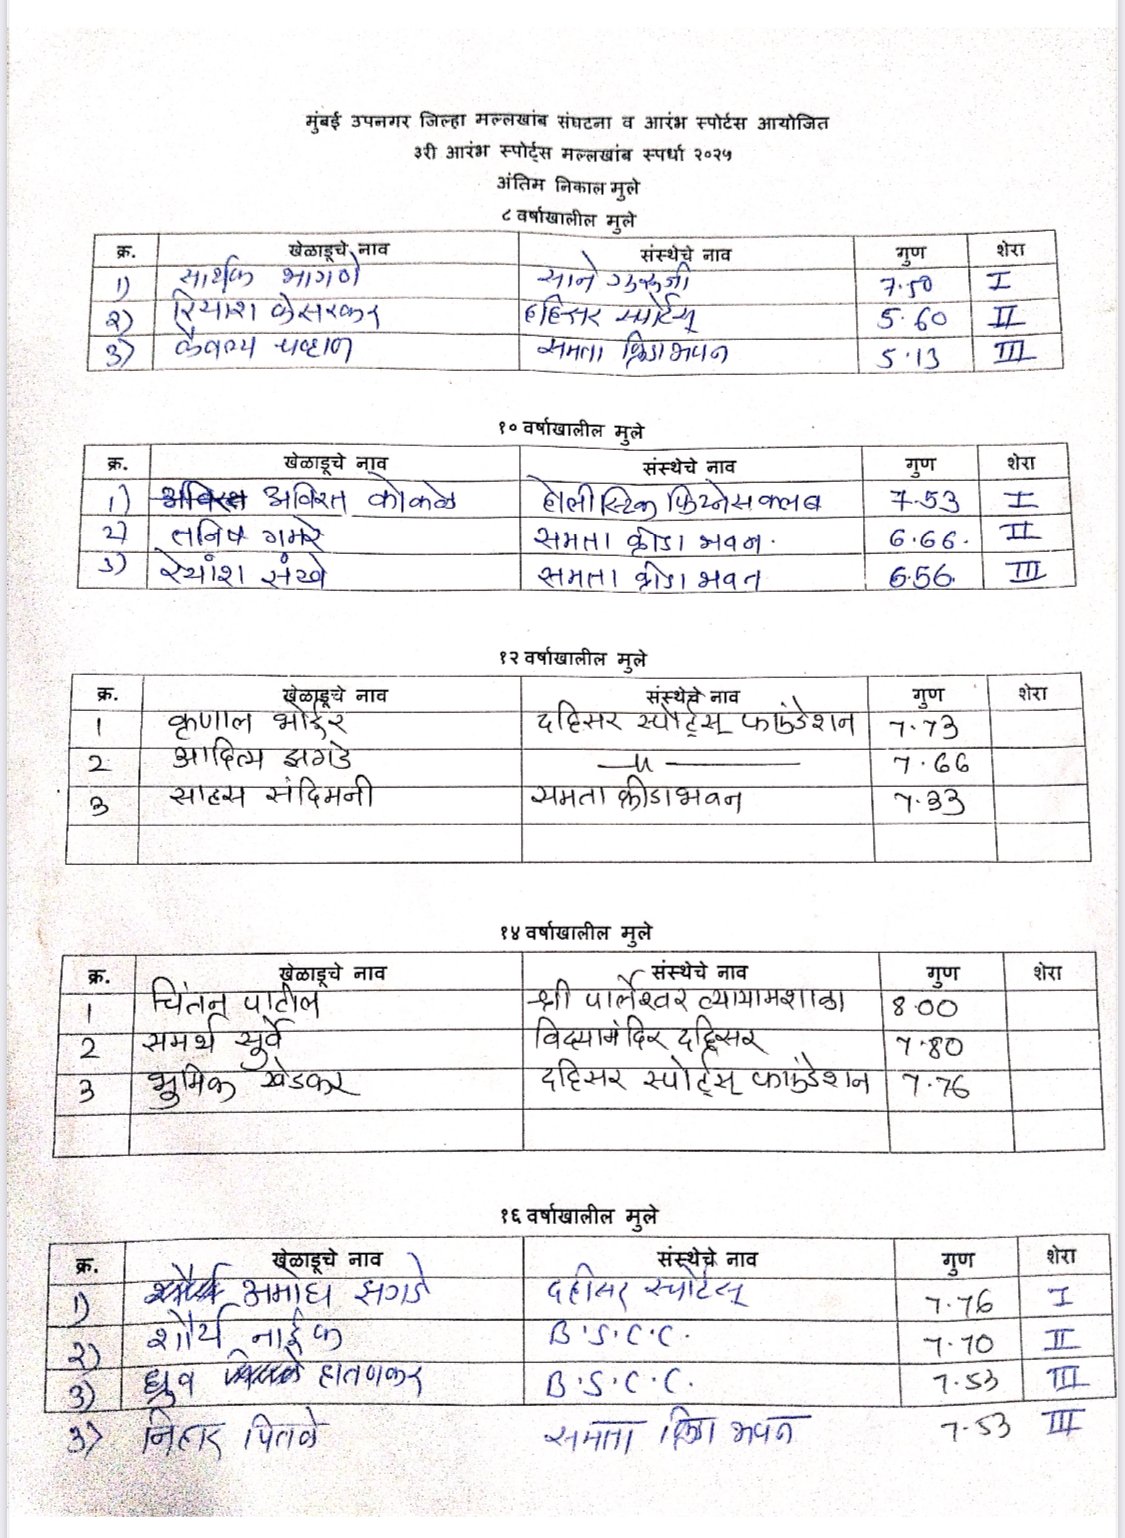 मुंबई उपनगर जिल्हा मल्लखांब संघटना व आरंभ स्पोर्टस आयोजित
३री आरंभ स्पोर्ट्स मल्लखांब स्पर्धा २०२५
अंतिम निकाल मुले
८ वर्षाखालील मुले
क्र. खेळाडूचे नाव संस्थेचे नाव गुण शेरा
1) सार्थक भागणे साने गुरुजी 7.50 I
२) रियांश केसरकर दहिसर स्पोर्टस् 5.60 II
3) कैवल्य चव्हाण समता क्रिडा भवन 5.13 III
१० वर्षाखालील मुले
क्र. खेळाडूचे नाव संस्थेचे नाव गुण शेरा
1) अविरत कोकळे होलीस्टिक फिटनेस क्लब 7.53 I
2) तनिष गमरे समता क्रीडा भवन. 6.66. II
3) रेयांश संखे समता क्रीडा भवन 6.56. III
१२ वर्षाखालील मुले
क्र. खेळाडूचे नाव संस्थेचे नाव गुण शेरा
1 कृणाल भोईर दहिसर स्पोर्ट्स् फाऊंडेशन 7.73
2 आदित्य झगडे —॥— 7.66
3 साहस संदिमनी समता क्रीडा भवन 7.33
१४ वर्षाखालील मुले
क्र. खेळाडूचे नाव संस्थेचे नाव गुण शेरा
1 चिंतन पाटील श्री पार्लेश्वर व्यायामशाळा 8.00
2 समर्थ सुर्वे विद्यामंदिर दहिसर 7.80
3 भुमिक खेडकर दहिसर स्पोर्ट्स् फाऊंडेशन 7.76
१६ वर्षाखालील मुले
क्र. खेळाडूचे नाव संस्थेचे नाव गुण शेरा
1) अमोघ झगडे दहीसर स्पोर्टस् 7.76 I
2) शौर्य नाईक B.S.C.C. 7.70 II
3) ध्रुव हातणकर B.S.C.C. 7.53 III
3) निहार पितळे समता क्रिडा भवन 7.53 III